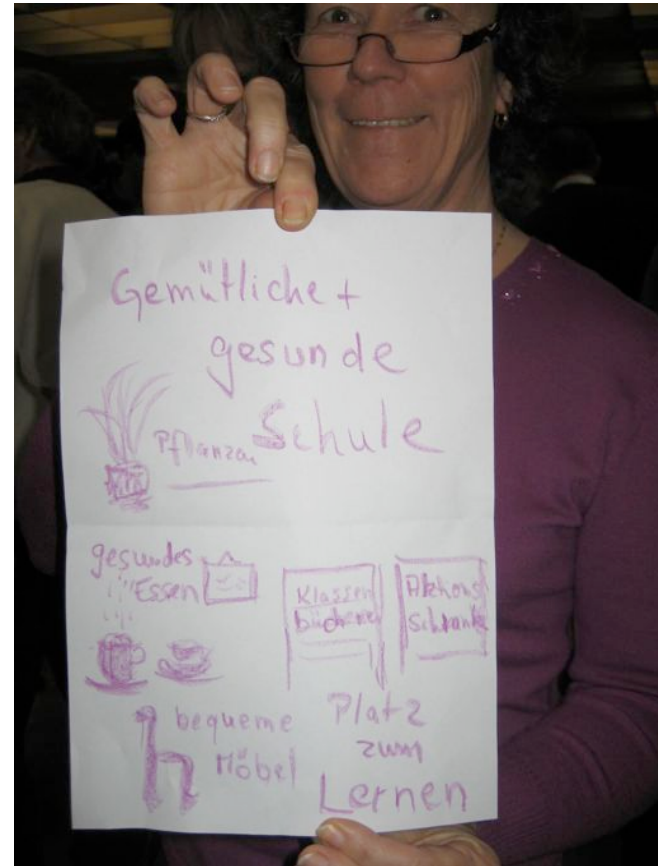 Gemütliche +
gesunde
Schule
Pflanzen
gesundes
Essen
Klassen
bücherei
Aktions
Schränke
bequeme
Möbel
Platz
zum
Lernen